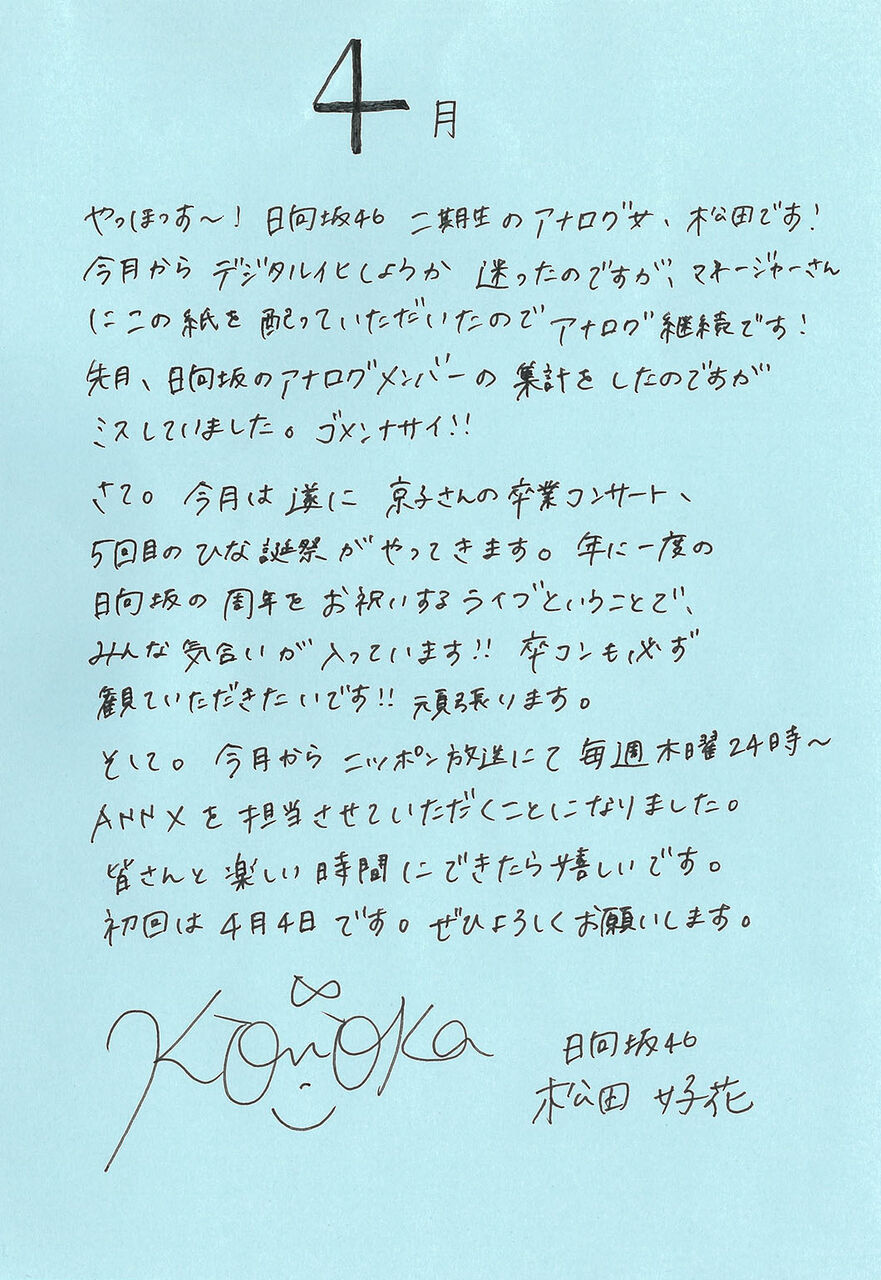 4月
やっほっす〜! 日向坂46 二期生のアナログ女、松田です!
今月から デジタル化しようか 迷ったのですが、マネージャーさん
にこの紙を 配っていただいたので アナログ継続です!
先月、日向坂のアナログメンバーの 集計をしたのですが
ミスしていました。ゴメンナサイ!!
さて。 今月は 遂に 京子さんの卒業コンサート、
5回目の ひな誕祭がやってきます。年に一度の
日向坂の 周年を お祝いするライブということで、
みんな気合いが 入っています!! 卒コンも必ず
観ていただきたいです!! 頑張ります。
そして。 今月から ニッポン放送にて 毎週木曜24時〜
ANNXを担当させていただくことになりました。
皆さんと 楽しい時間にできたら嬉しいです。
初回は 4月4日 です。ぜひよろしくお願いします。
Konoka
日向坂46
松田 好花